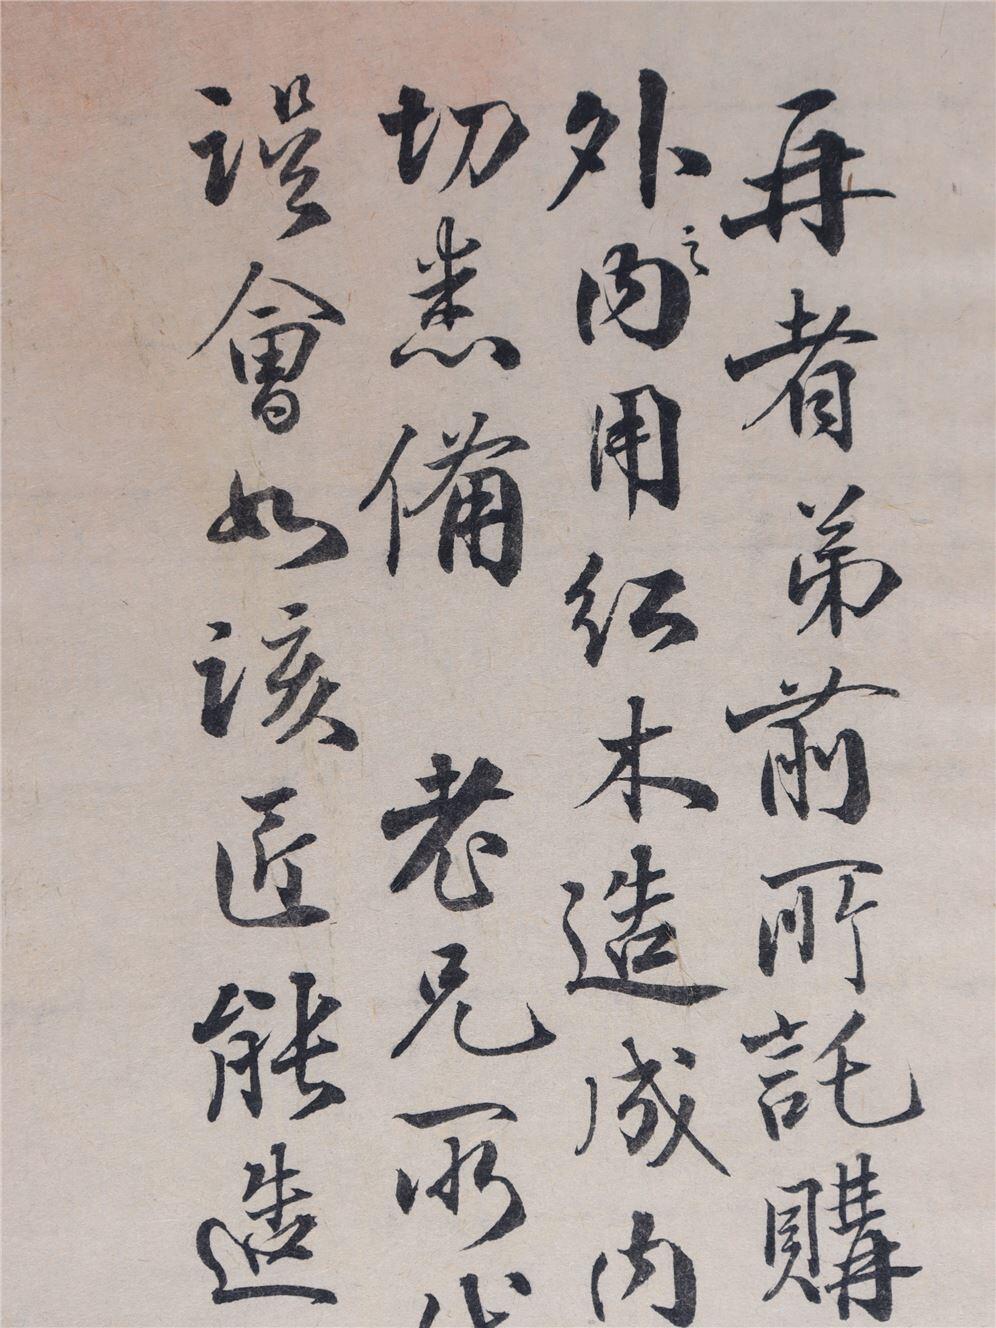 再者弟前所託購
外之内用紅木造成内
切悉備 老兄所
誤會如該匠能造